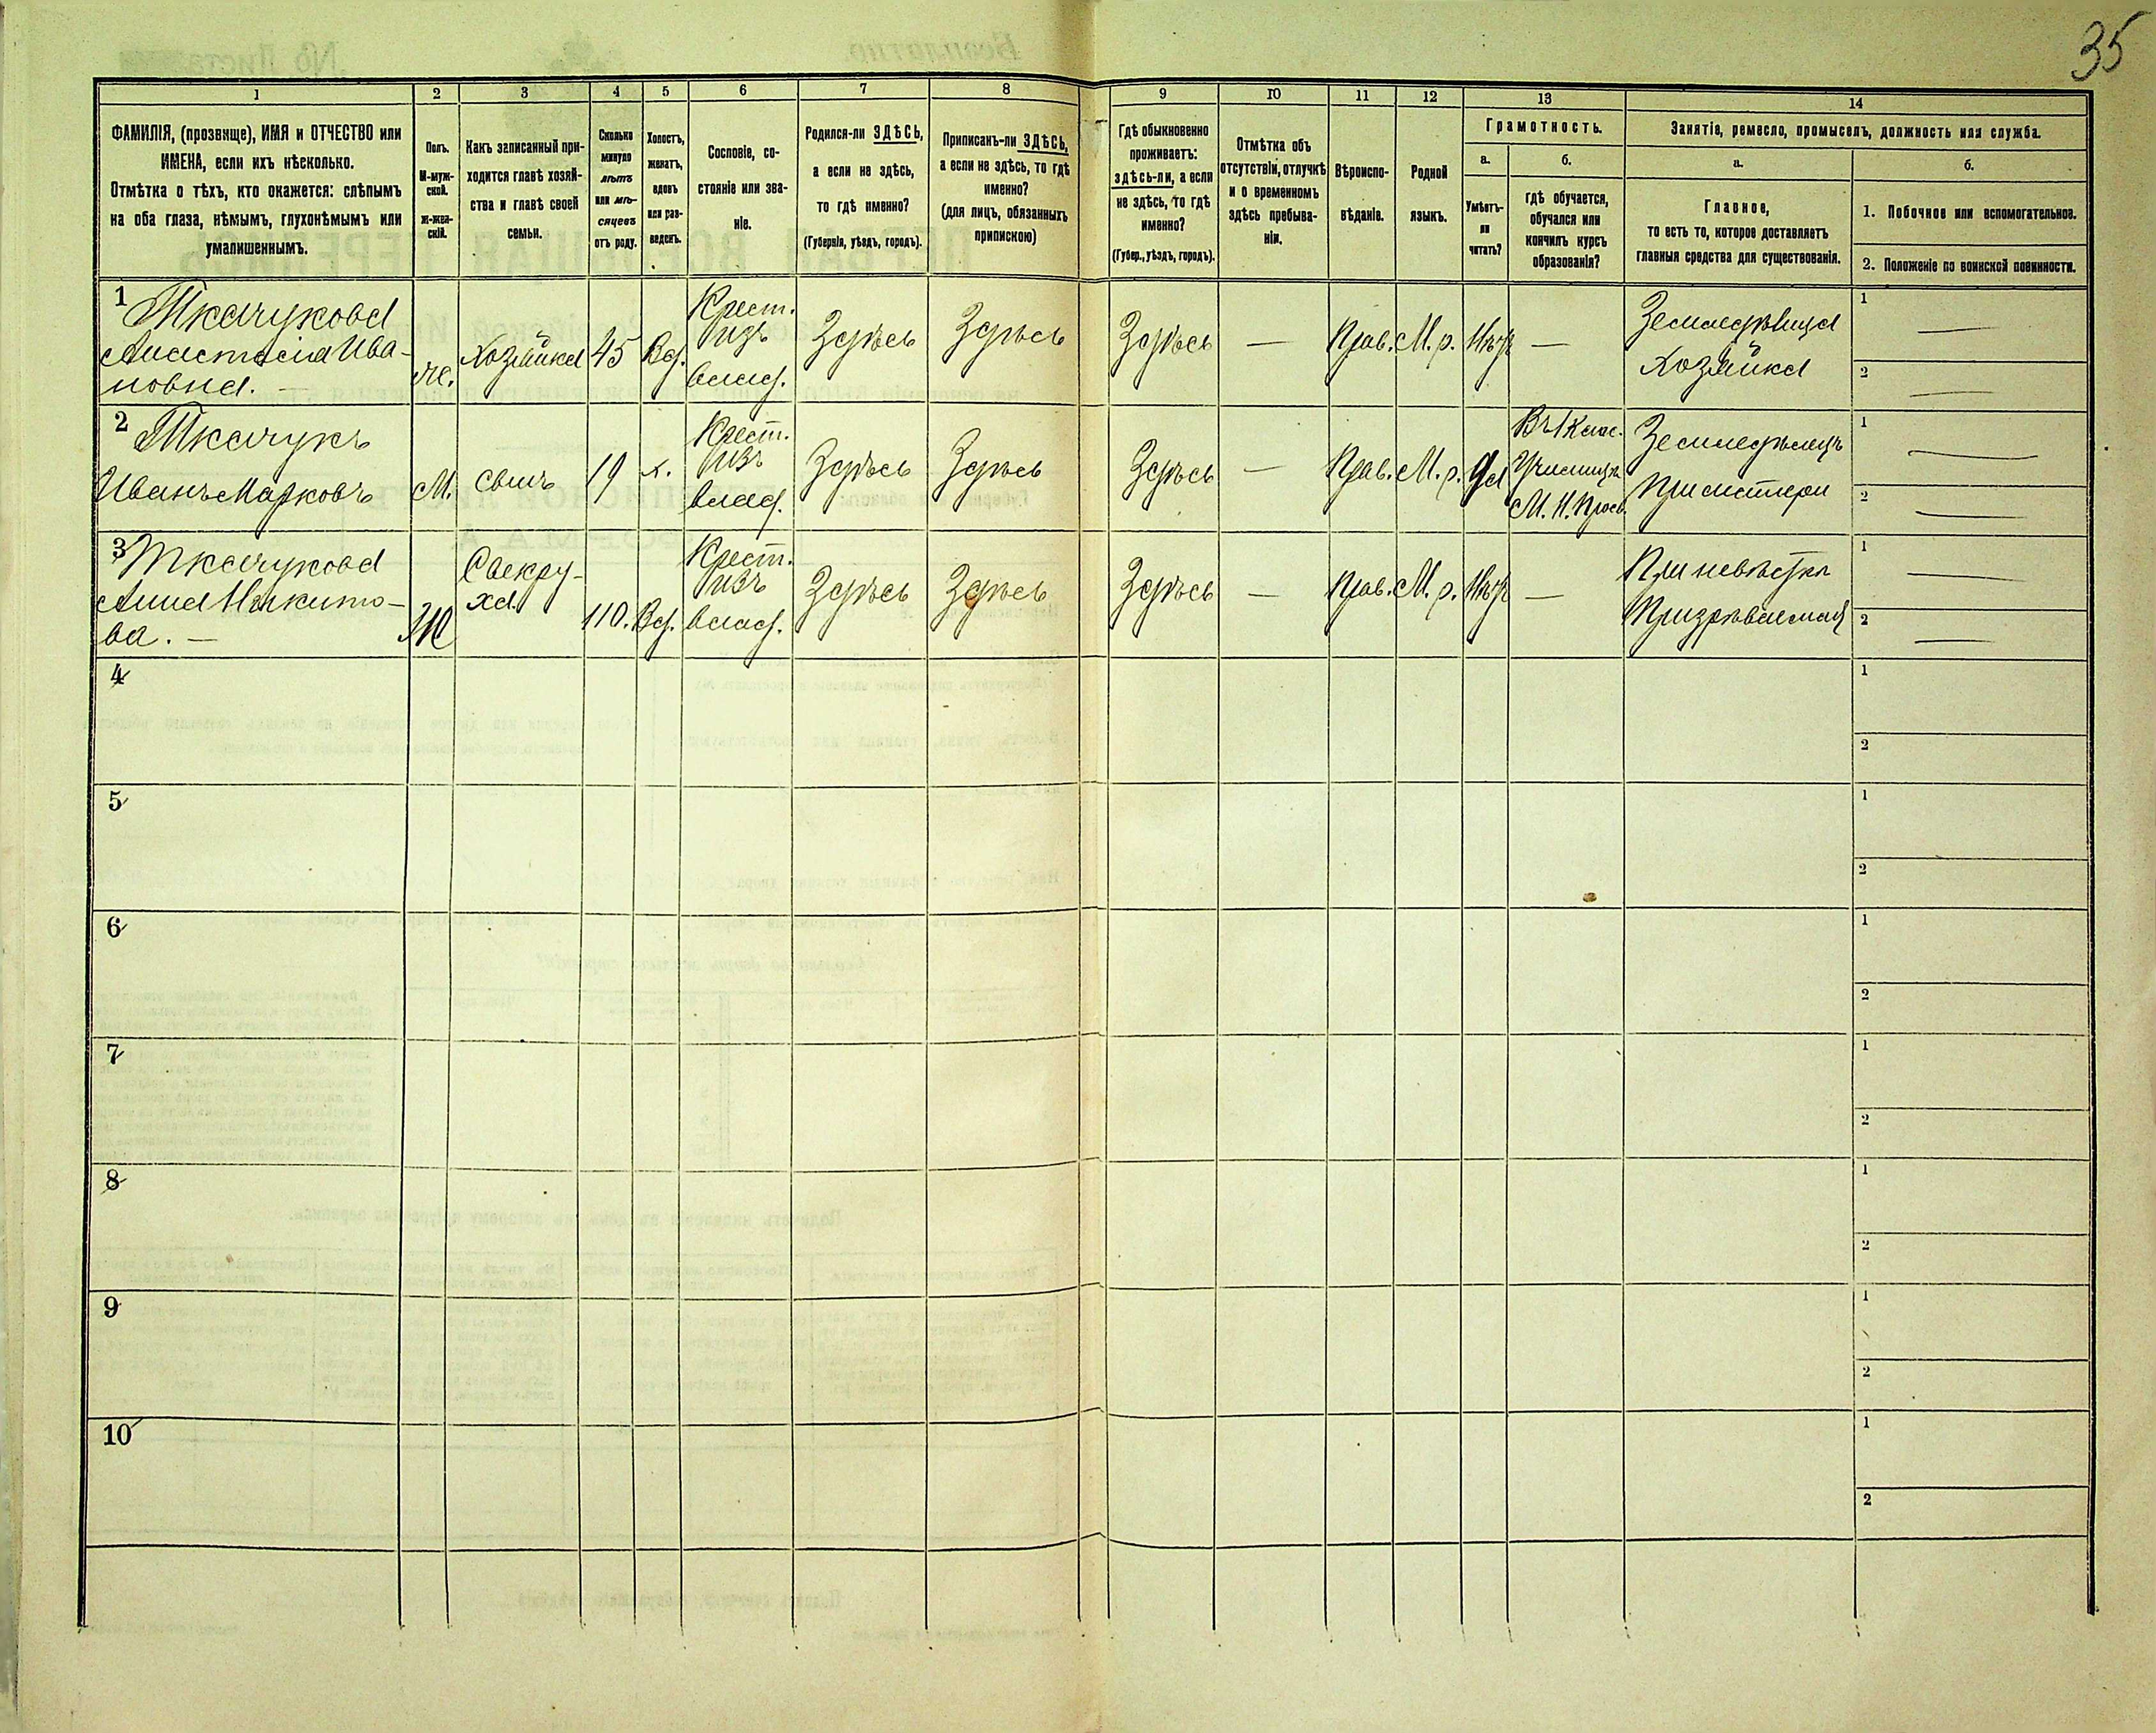 35
1 2 3 4 5 6 7 8 9 10 11 12 13 14
ФАМИЛІЯ, (прозвище), ИМЯ и ОТЧЕСТВО или
ИМЕНА, если ихъ нѣсколько.
Отмѣтка о тѣхъ, кто окажется: слѣпымъ
на оба глаза, нѣмымъ, глухонѣмымъ или
умалишеннымъ.
Полъ.
М-муж-
ской.
Ж-жен-
скій.
Какъ записанный при-
ходится главѣ хозяй-
ства и главѣ своей
семьи.
Сколько
минуло
лѣтъ
или мѣ-
сяцевъ
отъ роду.
Холостъ,
женатъ,
вдовъ
или раз-
веденъ.
Сословіе, со-
стояніе или зва-
ніе.
Родился-ли ЗДѢСЬ,
а если не здѣсь,
то гдѣ именно?
(Губернія, уѣздъ, городъ).
Приписанъ-ли ЗДѢСЬ,
а если не здѣсь, то гдѣ
именно?
(для лицъ, обязанныхъ
припискою)
Гдѣ обыкновенно
проживаетъ:
здѣсь-ли, а если
не здѣсь, то гдѣ
именно?
(Губер., уѣздъ, городъ).
Отмѣтка объ
отсутствіи, отлучкѣ
и о временномъ
здѣсь пребыва-
ніи.
Вѣроиспо-
вѣданіе.
Родной
языкъ.
Грамотность.
а.
Умѣетъ-
ли
читать?
б.
гдѣ обучается,
обучался или
кончилъ курсъ
образованія?
Занятіе, ремесло, промыселъ, должность или служба.
а.
Главное,
то есть то, которое доставляетъ
главныя средства для существованія.
б.
1. Побочное или вспомогательное.
2. Положеніе по воинской повинности.
1 Ткачукова
Анастасія Ива-
новна. —
же.
Хозяйка
45
Вд.
Крест.
изъ
влад.
Здѣсь
Здѣсь
Здѣсь
—
Прав.
М. р.
Нѣтъ
—
Земледѣлица
Хозяйка
1 —
2 —
2 Ткачукъ
Иванъ Марковъ
М.
сынъ
19
х.
Крест.
изъ
влад.
Здѣсь
Здѣсь
Здѣсь
—
Прав.
М. р.
Да
Въ 1 клас.
Училищѣ
М. Н. Просв.
Земледѣлецъ
При матери
1 —
2 —
3 Ткачукова
Анна Никито-
ва. —
Ж
Свекру-
ха.
110.
Вд.
Крест.
изъ
влад.
Здѣсь
Здѣсь
Здѣсь
—
Прав.
М. р.
Нѣтъ
—
При невѣстки
Призрѣваемая
1 —
2 —
4
1
2
5
1
2
6
1
2
7
1
2
8
1
2
9
1
2
10
1
2